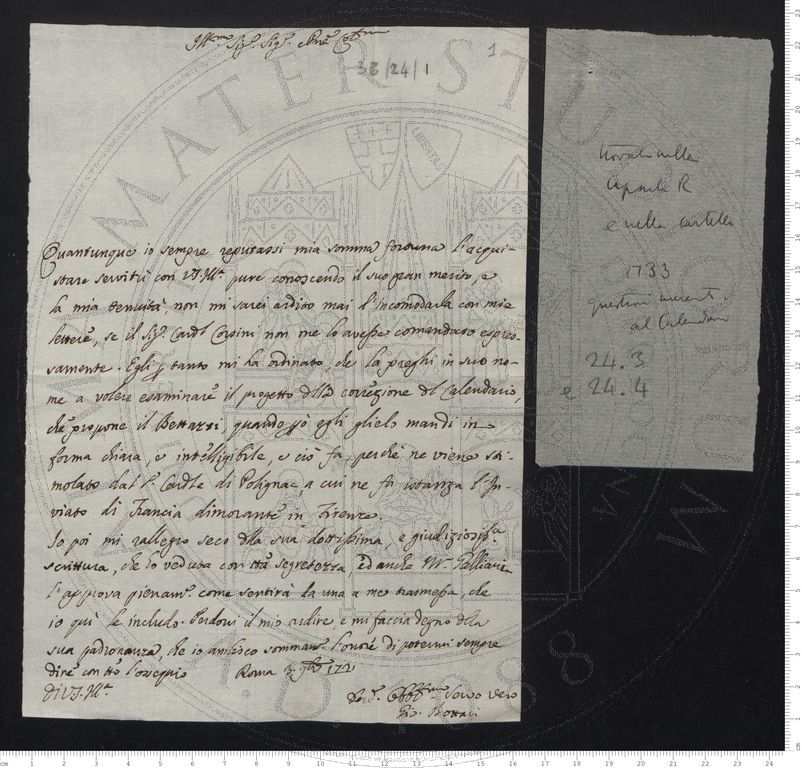 Ill.mo Sig.r Sig.r
1
38/24/1
Quantunque io sempre reputassi mia somma fortuna l'acqui-
stare servitù con VS. Ill.ma pure conoscendo il suo gran merito, e
la mia tenuità, non mi sarei ardito mai l'incomodarla con mie
lettere, se il Sig.r Card.l Corsini non me lo avesse comandato espres-
samente. Egli p tanto mi ha ordinato, che la preghi in suo no-
me a volere esaminare il progetto dlla correzione del Calendario,
che propone il Bettazzi, quando p.ò egli glielo mandi in
forma chiara, e intelligibile, e ciò fa, perchè ne viene sti-
molato dal S.r Cardle di Polignac, a cui ne fa istanza l'In-
viato di Francia dimorante in Firenze.
Io poi mi rallegro seco dlla sua dottissima, e giudiziosiss.a
scrittura, che ho veduta con tta segretezza, ed anche Mr. Galliani
l'approva pienam.e come sentirà da una a me trasmessa, che
io quì le includo. Perdoni il mio ardire e mi faccia degno dlla
sua padronanza, che io ambisco sommam.e l'onore di potermi sempre
dire con tto l'ossequio Roma
Di VS. Ill.ma
Dev.mo Obb.mo Servo vero
Gio. Bottari
trovati nella
Capsula R
e nella cartella
1733
questioni inerenti
al Calendario
24.3
e 24.4
ALMA MATER STUDIORUM
LIBERTAS
A.D. 1088
cm 1 2 3 4 5 6 7 8 9 10 11 12 13 14 15 16 17 18 19 20 21 22 23 24